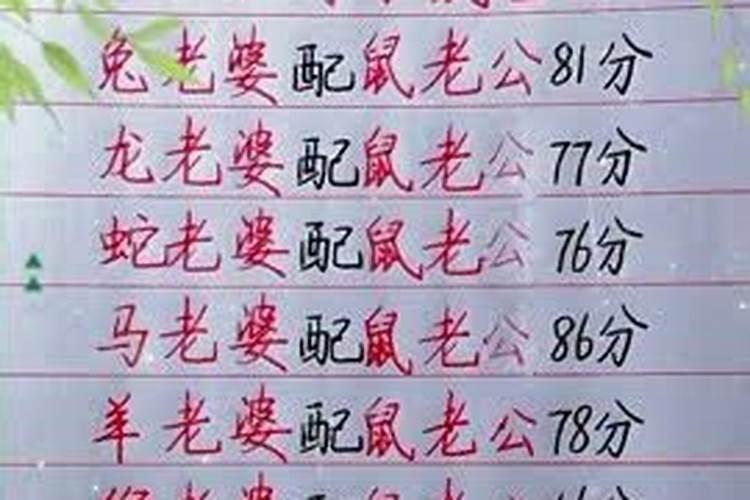 兔老婆配鼠老公81分
龙老婆配鼠老公77分
蛇老婆配鼠老公76分
马老婆配鼠老公86分
羊老婆配鼠老公78分